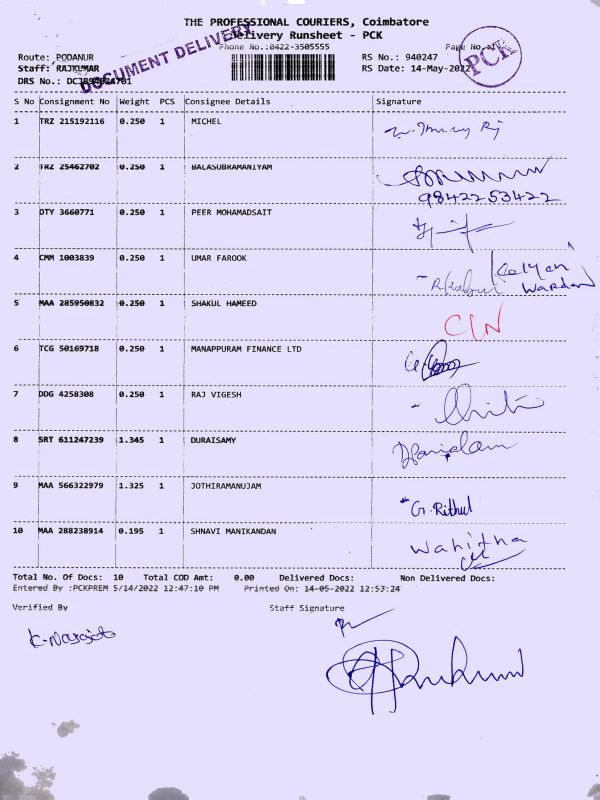 THE PROFESSIONAL COURIERS, Coimbatore
Delivery Runsheet - PCK
Phone No.:0422-3505555
Page No.
DOCUMENT DELIVERY
PCK
Route: PODANUR RS No.: 940247
Staff: RAJKUMAR RS Date: 14-May-2022
DRS No.:
S No Consignment No Weight PCS Consignee Details Signature
1 TRZ 215192116 0.250 1 MICHEL
2 TRZ 25462702 0.250 1 BALASUBRAMANIYAM
9842253422
3 OTY 3660771 0.250 1 PEER MOHAMADSAIT
4 CMM 1003839 0.250 1 UMAR FAROOK
Warden
5 MAA 285950832 0.250 1 SHAKUL HAMEED CIN
6 TCG 50169718 0.250 1 MANAPPURAM FINANCE LTD
7 DDG 4258308 0.250 1 RAJ VIGESH
8 SRT 611247239 1.345 1 DURAISAMY
9 MAA 566322979 1.325 1 JOTHIRAMANUJAM G. Rithul
10 MAA 288238914 0.195 1 SHNAVI MANIKANDAN Wahitha
Total No. Of Docs: 10 Total COD Amt: 0.00 Delivered Docs: Non Delivered Docs:
Entered By :PCKPREM 5/14/2022 12:47:10 PM Printed On: 14-05-2022 12:53:24
Verified By Staff Signature